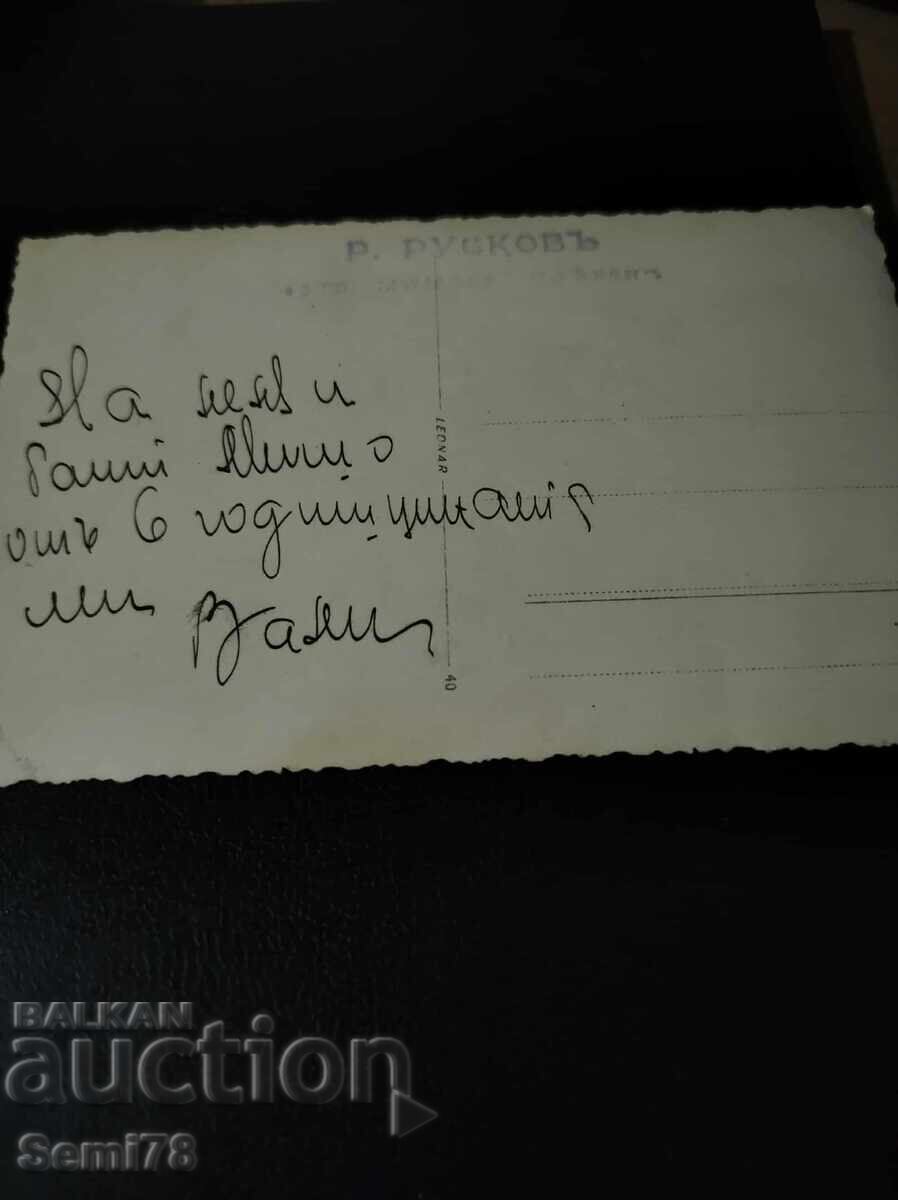 Р. РУСКОВЪ
На леля и
батй Мишо
отъ 6 годиш
ми Вани
LEONAR
40
BALKAN
auction
Semi78